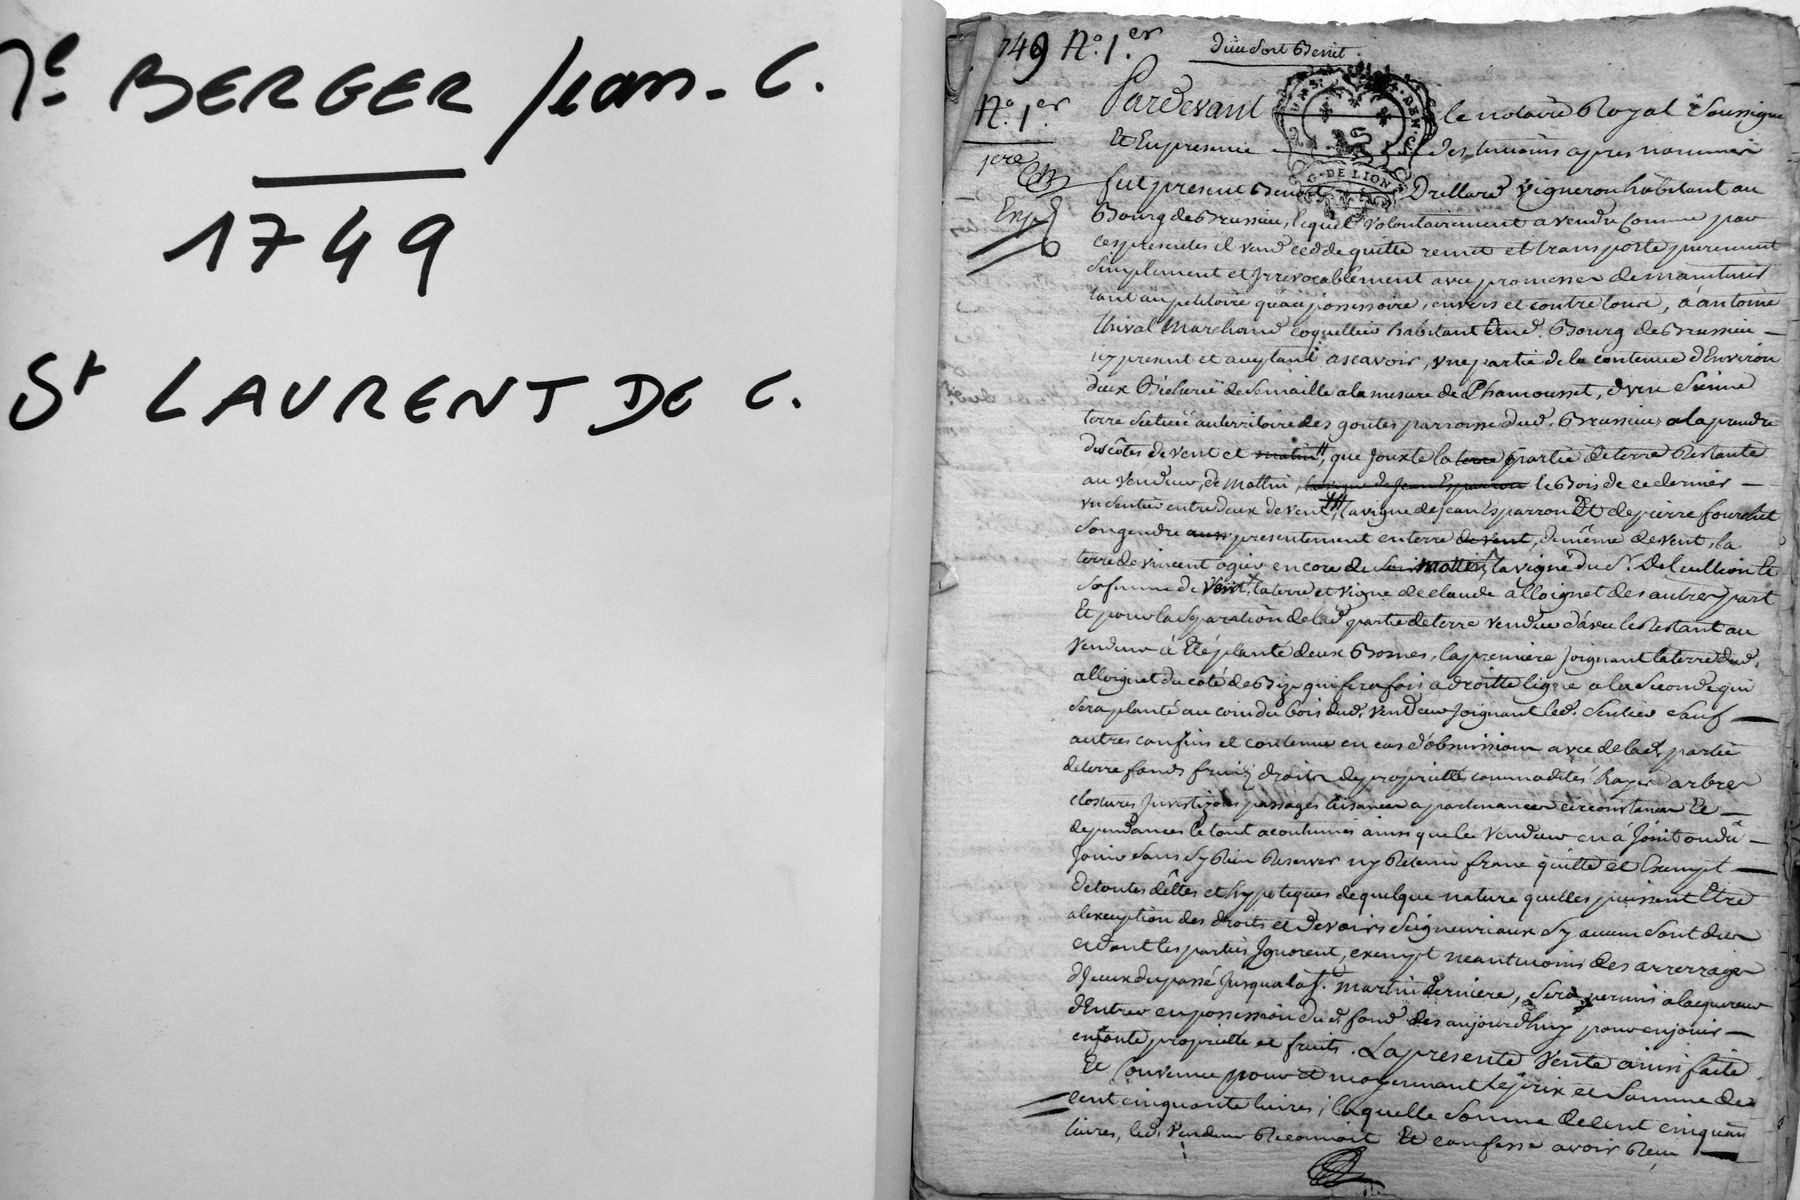 Me BERGER Jean-C.
1749
St LAURENT DE C.
1749 N.º 1.er
N.º 1.er
1ere
Exp
Pardevant le notaire Royal Soussigné
Et En presence des temoins apres nommés
fut present Benoit Drillard vigneron habitant au
Bourg de Brussieu, lequel volontairement a vendu comme par
ces presentes il vend cedde quitte remet et transporte purement
Simplement et Irrevocablement avec promesse de maintenir
tant au petitoire qu'au possessoire, envers et contre tous, à antoine
thival Marchand coquetier habitant aud. Bourg de Brussieu
icy present et acceptant ascavoir, vne partie de la contenue d'Environ
deux Bicherée de Semaille a la mesure de Chamousset, d'vne Sienne
terre Scituée au territoire des goutes parroisse dud. Brussieu, a la prendre
des côtes de vent et matin, que Jouxte la terre partie de terre Restante
au vendeur, de mattin, le Bois de ce dernier
vn Sentier entre deux de vent, la vigne de Jean Esparron Et de pierre fourchet
Son gendre presentement en terre de vent, de même de vent, la
terre de vincent ogier encore de mattin, la vigne du S.r Delcullion Et
Sa femme de vent, la terre et vigne de claude alloignet des autres part
Et pour la Separation de lad. partie de terre vendue d'avec le Restant au
vendeur a Eté planté deux Bornes, la premiere Joignant la terre dud.
alloignet du coté de Bize qui fera fois a droitte ligne a la Seconde qui
Sera planté au coin du bois dud. vendeur Joignant led. Sentier Sauf
autres confins et contenue en cas d'obmission avec de lad. partie
de terre fonds fruits droits de proprietté commodités hayes arbres
clostures Investizons passages aisances apartenances circonstances Et
dependances le tout acoutumés ainsi que le vendeur en a Joüit ou dû
Joüir Sans Sy Rien Reserver ny Retenir franc quitte et Exempt
de toutes dêttes et hypoteques de quelque nature quelles puissent Etre
a l'exception des droits et devoirs Seigneuriaux Sy aucun Sont dus
et dont les parties Ignorent, exempt neantmoins des arrerrages
d'Iceux du passé Jusqua la S.t martin derniere, Sera permis a lacquereur
d'Entrer en possession dud. fond des aujourdhuy pour en jouir
en toute proprietté et fruits. La presente vente ainsi faite
Et Convenue pour et moyennant le prix et Somme de
cent cinquante livres, laquelle Somme de cent cinquan
livres, led. vendeur Reconnoit Et confesse avoir Reçu